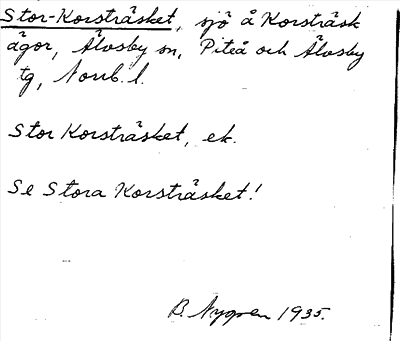 Stor-Korsträsket, sjö å Korsträsk
ägor, Älvsby sn, Piteå och Älvsby
tg, Norrb. l.
Stor Korsträsket, ek.
Se Stora Korsträsket!
B. Nygren 1935.